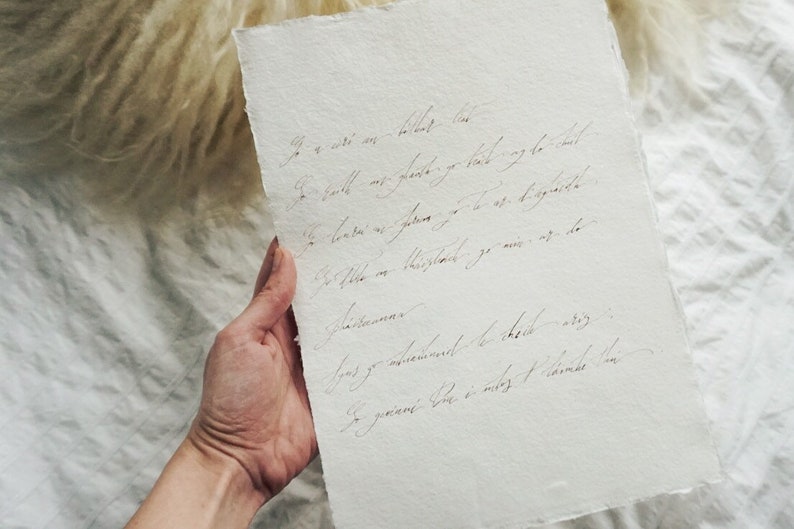 Go n-éirí an bóthar leat
Go raibh an ghaoth go brách ag do chúl
Go lonraí an ghrian go te ar d'aghaidh
Go dtite an bháisteach go mín ar do
pháirceanna
Agus go mbuailimid le chéile arís,
Go gcoinní Dia i mbos A láimhe thú